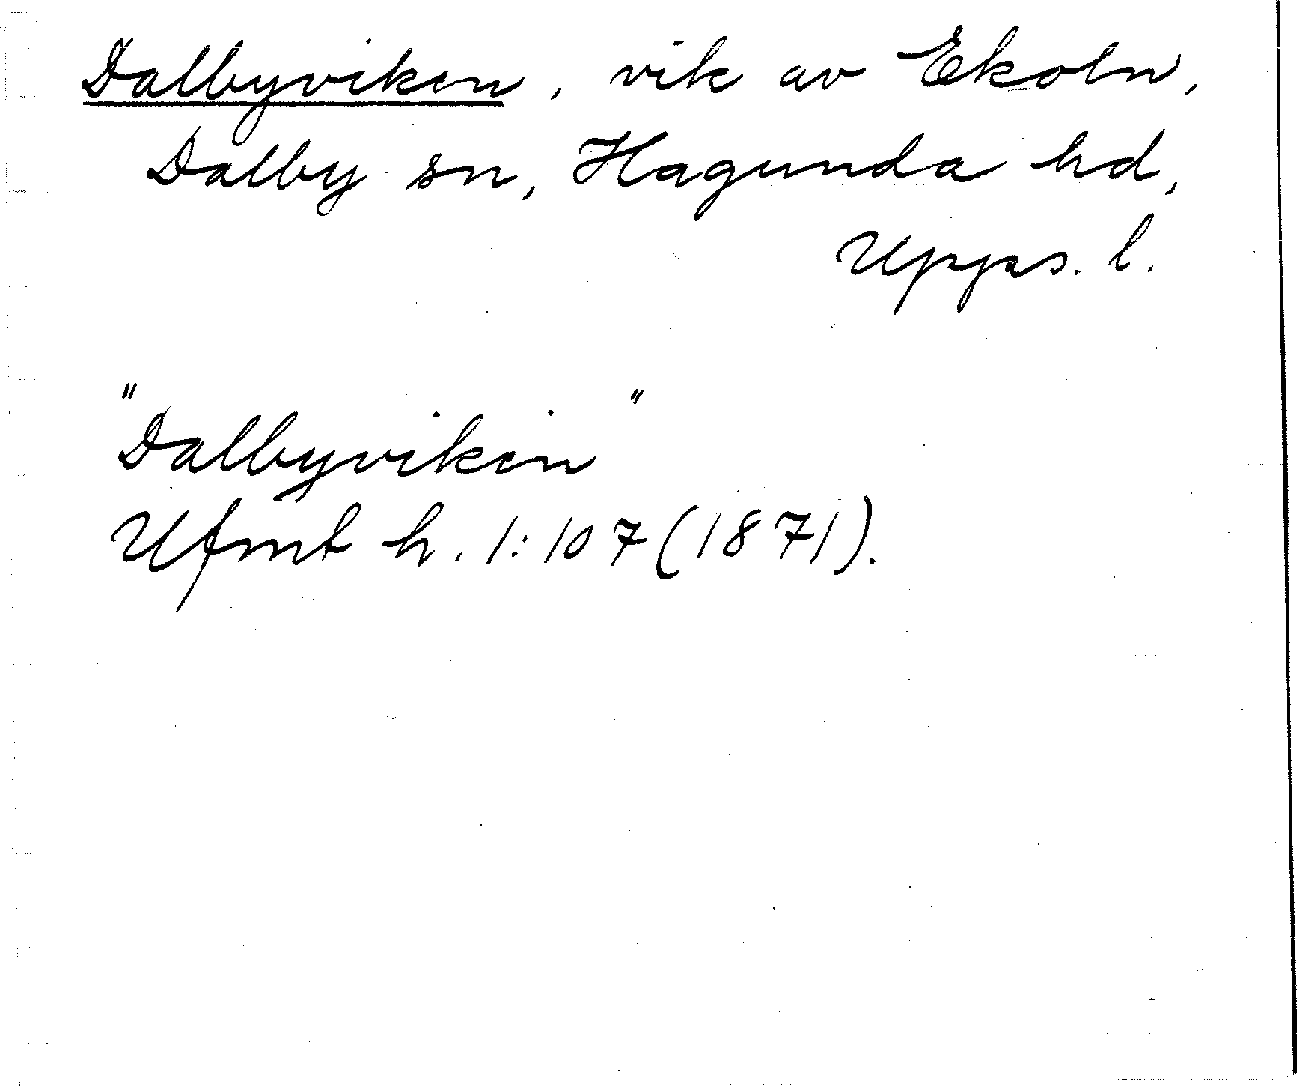 Dalbyviken, vik av Ekoln,
Dalby sn, Hagunda hd,
Upps. l.
"Dalbyviken"
Ufmt h. 1:107(1871).